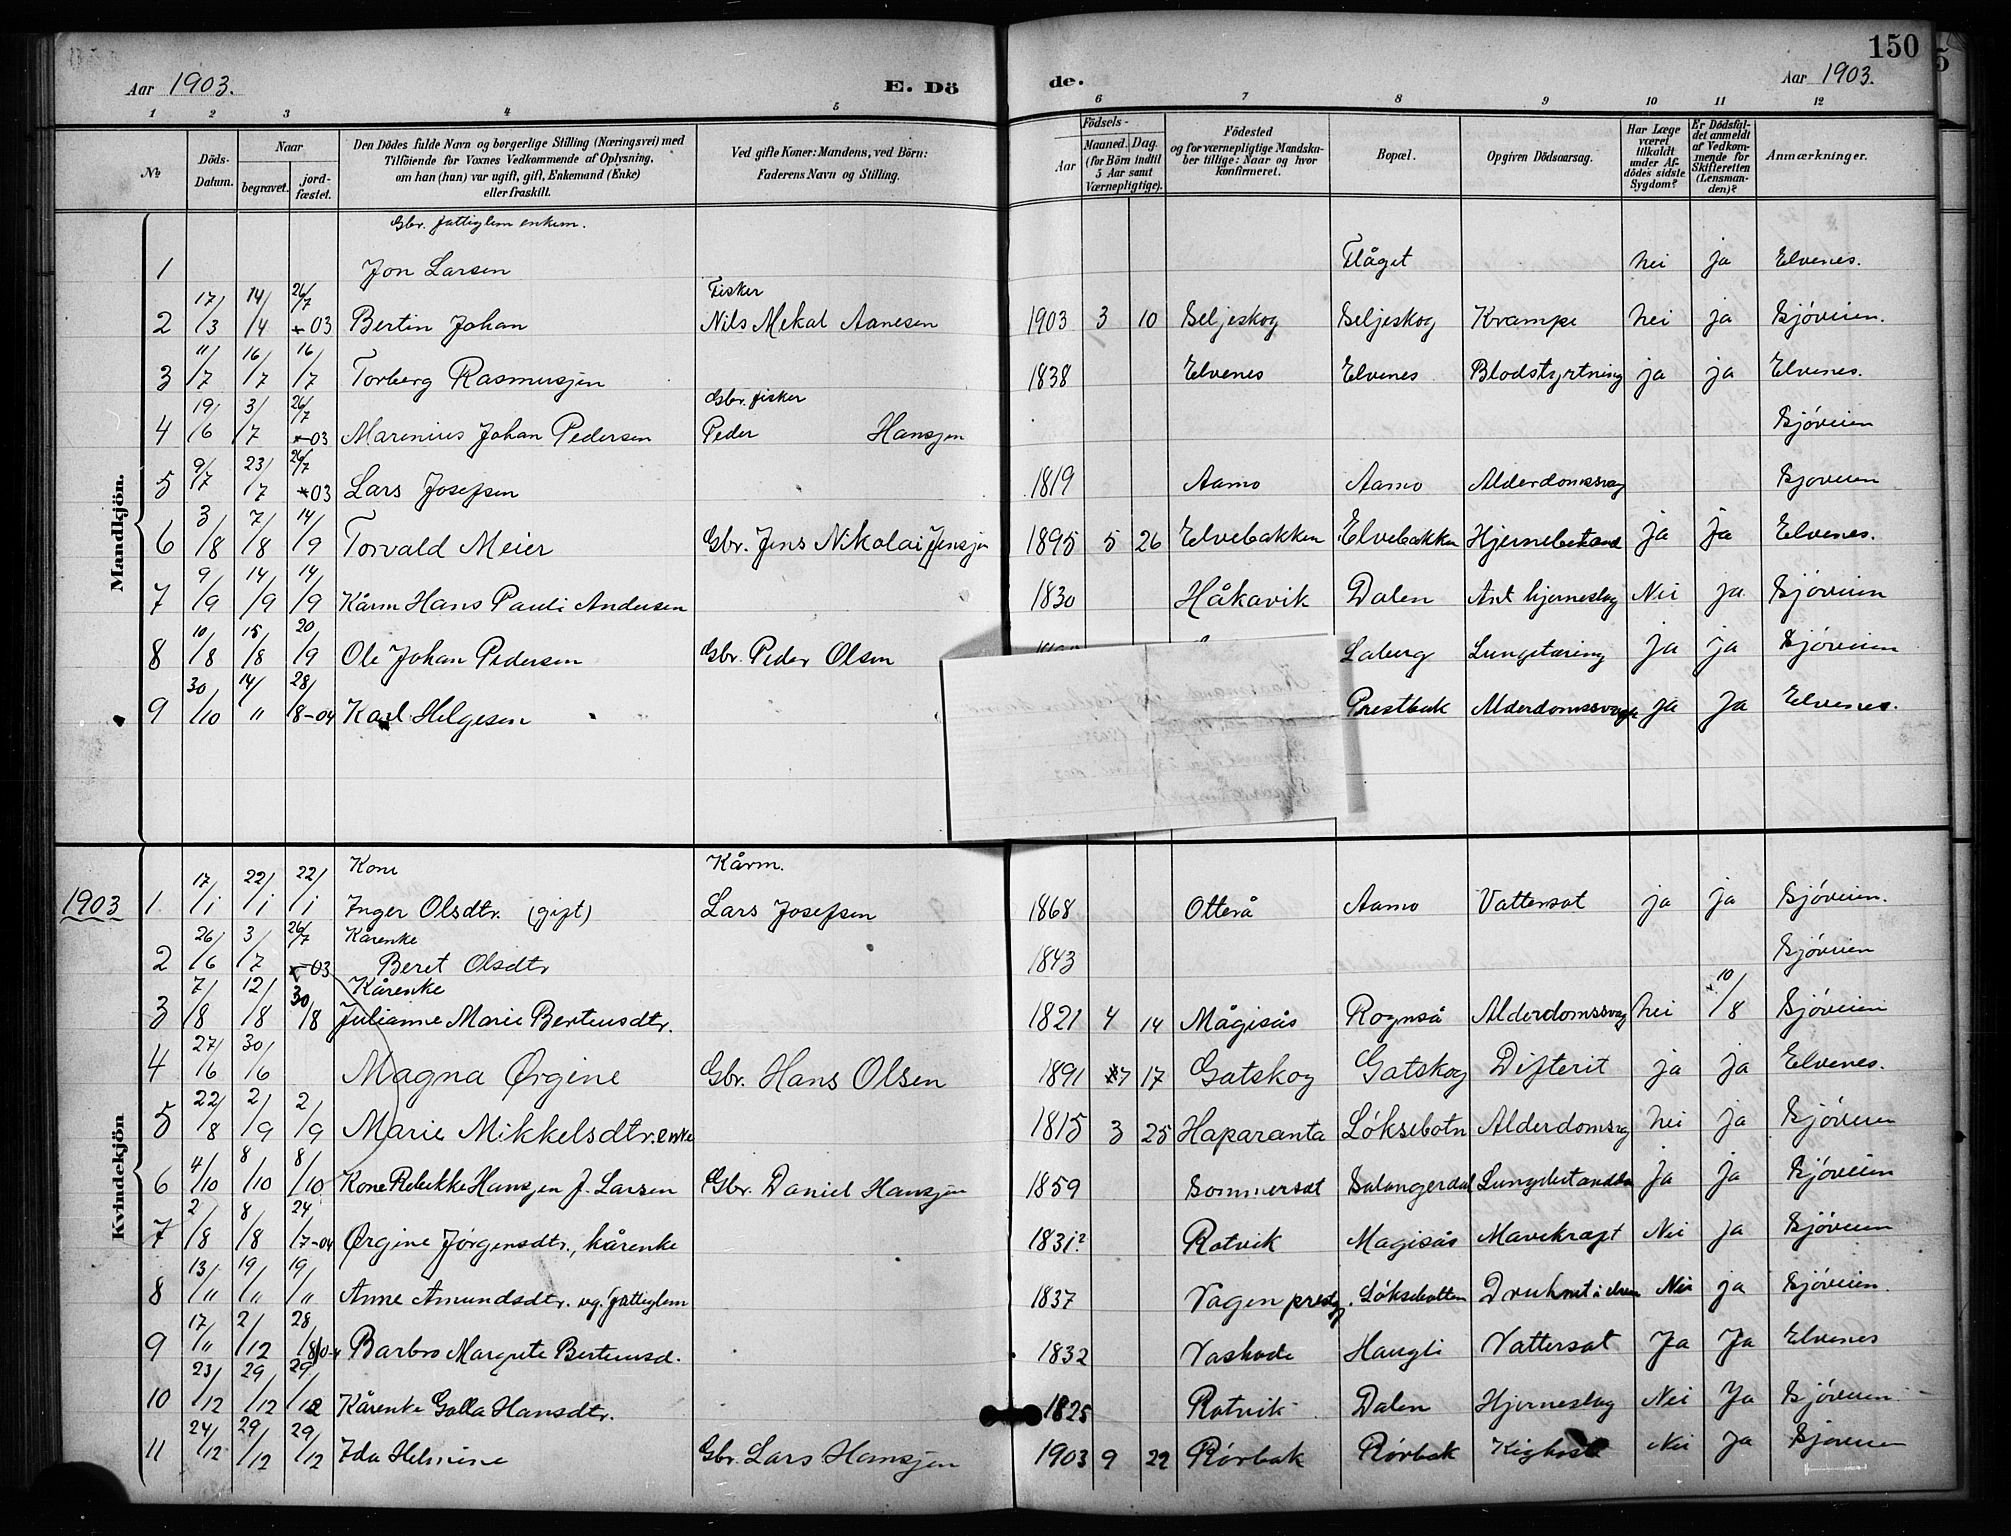 150
Aar 1903. E. Dö de. Aar 1903.
1 2 3 4 5 6 7 8 9 10 11 12
№ Döds-Datum. Naar begravet. jord-fæstet. Den Dödes fulde Navn og borgerlige Stilling (Næringsvei) med Tilföiende for Voxnes Vedkommende af Oplysning, om han (hun) var ugift, gift, Enkemand (Enke) eller fraskilt. Ved gifte Koner: Mandens, ved Börn: Faderens Navn og Stilling. Födsels- Aar Maaned. Dag. (for Börn indtil 5 Aar samt Værnepligtige). Födested og for værnepligtige Mandska-ber tillige: Naar og hvor konfirmeret. Bopæl. Opgiven Dödsaarsag. Har Læge været tilkaldt under Af-dödes sidste Sygdom? Er Dödsfal-det anmeldt af Vedkom-mende for Skifteretten (Lensman-den)? Anmærkninger.
Mandkjön.
Gbr. fattiglem enkem.
1 Jon Larsen Flåget nei ja Elvenes.
Fisker
2 17/3 14/4 26/7 03 Bertin Johan Nils Mekal Aanesen 1903 3 10 Seljeskog Seljeskog Krampe nei ja Sjöveien.
3 11/7 16/7 16/7 Torberg Rasmussen 1838 Elvenes Elvenes Blodstyrtning ja ja Elvenes.
Gbr. fisker
4 19/6 3/7 26/7 03 Marenius Johan Pedersen Peder Hanssen Sjöveien
5 9/7 23/7 26/7 03 Lars Josefsen 1819 Aamo Aamo Alderdomssvag Sjoveien
6 3/8 7/8 14/9 Torvald Meier Gbr. Jens Nikolai Jenssen 1895 5 26 Elvebakken Elvebakken ja ja Elvenes.
7 9/9 14/9 14/9 Kårm Hans Pauli Andersen 1830 Håkavik Dalen Ant hjerneslag Nei ja Sjöveien
8 10/8 15/8 20/9 Ole Johan Pedersen Gbr. Peder Olsen Laberg Lungetæring Ja ja Sjöveien
9 30/10 14/" 28/8-04 Karl Helgesen Prestbak Alderdomssvage ja Ja Elvenes.
Kvindekjön
Kone Kårm.
1903 1 17/1 22/1 22/1 Inger Olsdtr. (gift) Lars Josefsen 1868 Otterå Aamo Vattersot ja ja Sjöveien.
Kårenke
2 26/6 3/7 26/7 03 Beret Olsdtr 1843 Sjöveien
Kårenke
3 7/8 12/8 30/8 Julianne Marie Berteusdtr. 1821 4 14 Mågisås Rognså Alderdomssvag nei 10/8 Sjöveien
4 27/6 30/6 Magna Ørgine Gbr. Hans Olsen 1891 7 17 Gatskog Gatskog Difterit ja ja Elvenes.
5 22/8 2/9 2/9 Marie Mikkelsdtr. enke 1815 3 25 Haparanta Löksebotn Alderdomsvag nei ja Sjöveien
6 4/10 8/10 8/10 Kone Rebekke Hanssen f. Larsen Gbr. Daniel Hanssen 1859 Sommerset Salangerdal ja ja Sjöveien
7 2/8 8/8 24/7-04 Ørgine Jørgensdtr., kårenke 1831? Rotvik Magisås Mavekræft Nei ja Sjöveien
8 13/" 19/" 19/" Anne Amundsdtr. ug. fattiglem 1837 Vagen prestg. Löksebotten Nei ja Sjöveien.
9 17/" 2/12 28/8 04 Barbro Margrete Berteusd. 1832 Vashode Haugli Vattersot Ja Ja Elvenes
10 23/12 29/12 29/12 Kårenke Golla Hansdtr. 1825 Rotvik Dalen Hjerneslag Nei Ja Sjöveien
11 24/12 29/12 29/12 Ida Helmine Gbr. Lars Hanssen 1903 9 22 Rörbak Rörbak Kighoste Nei Ja Sjöveien